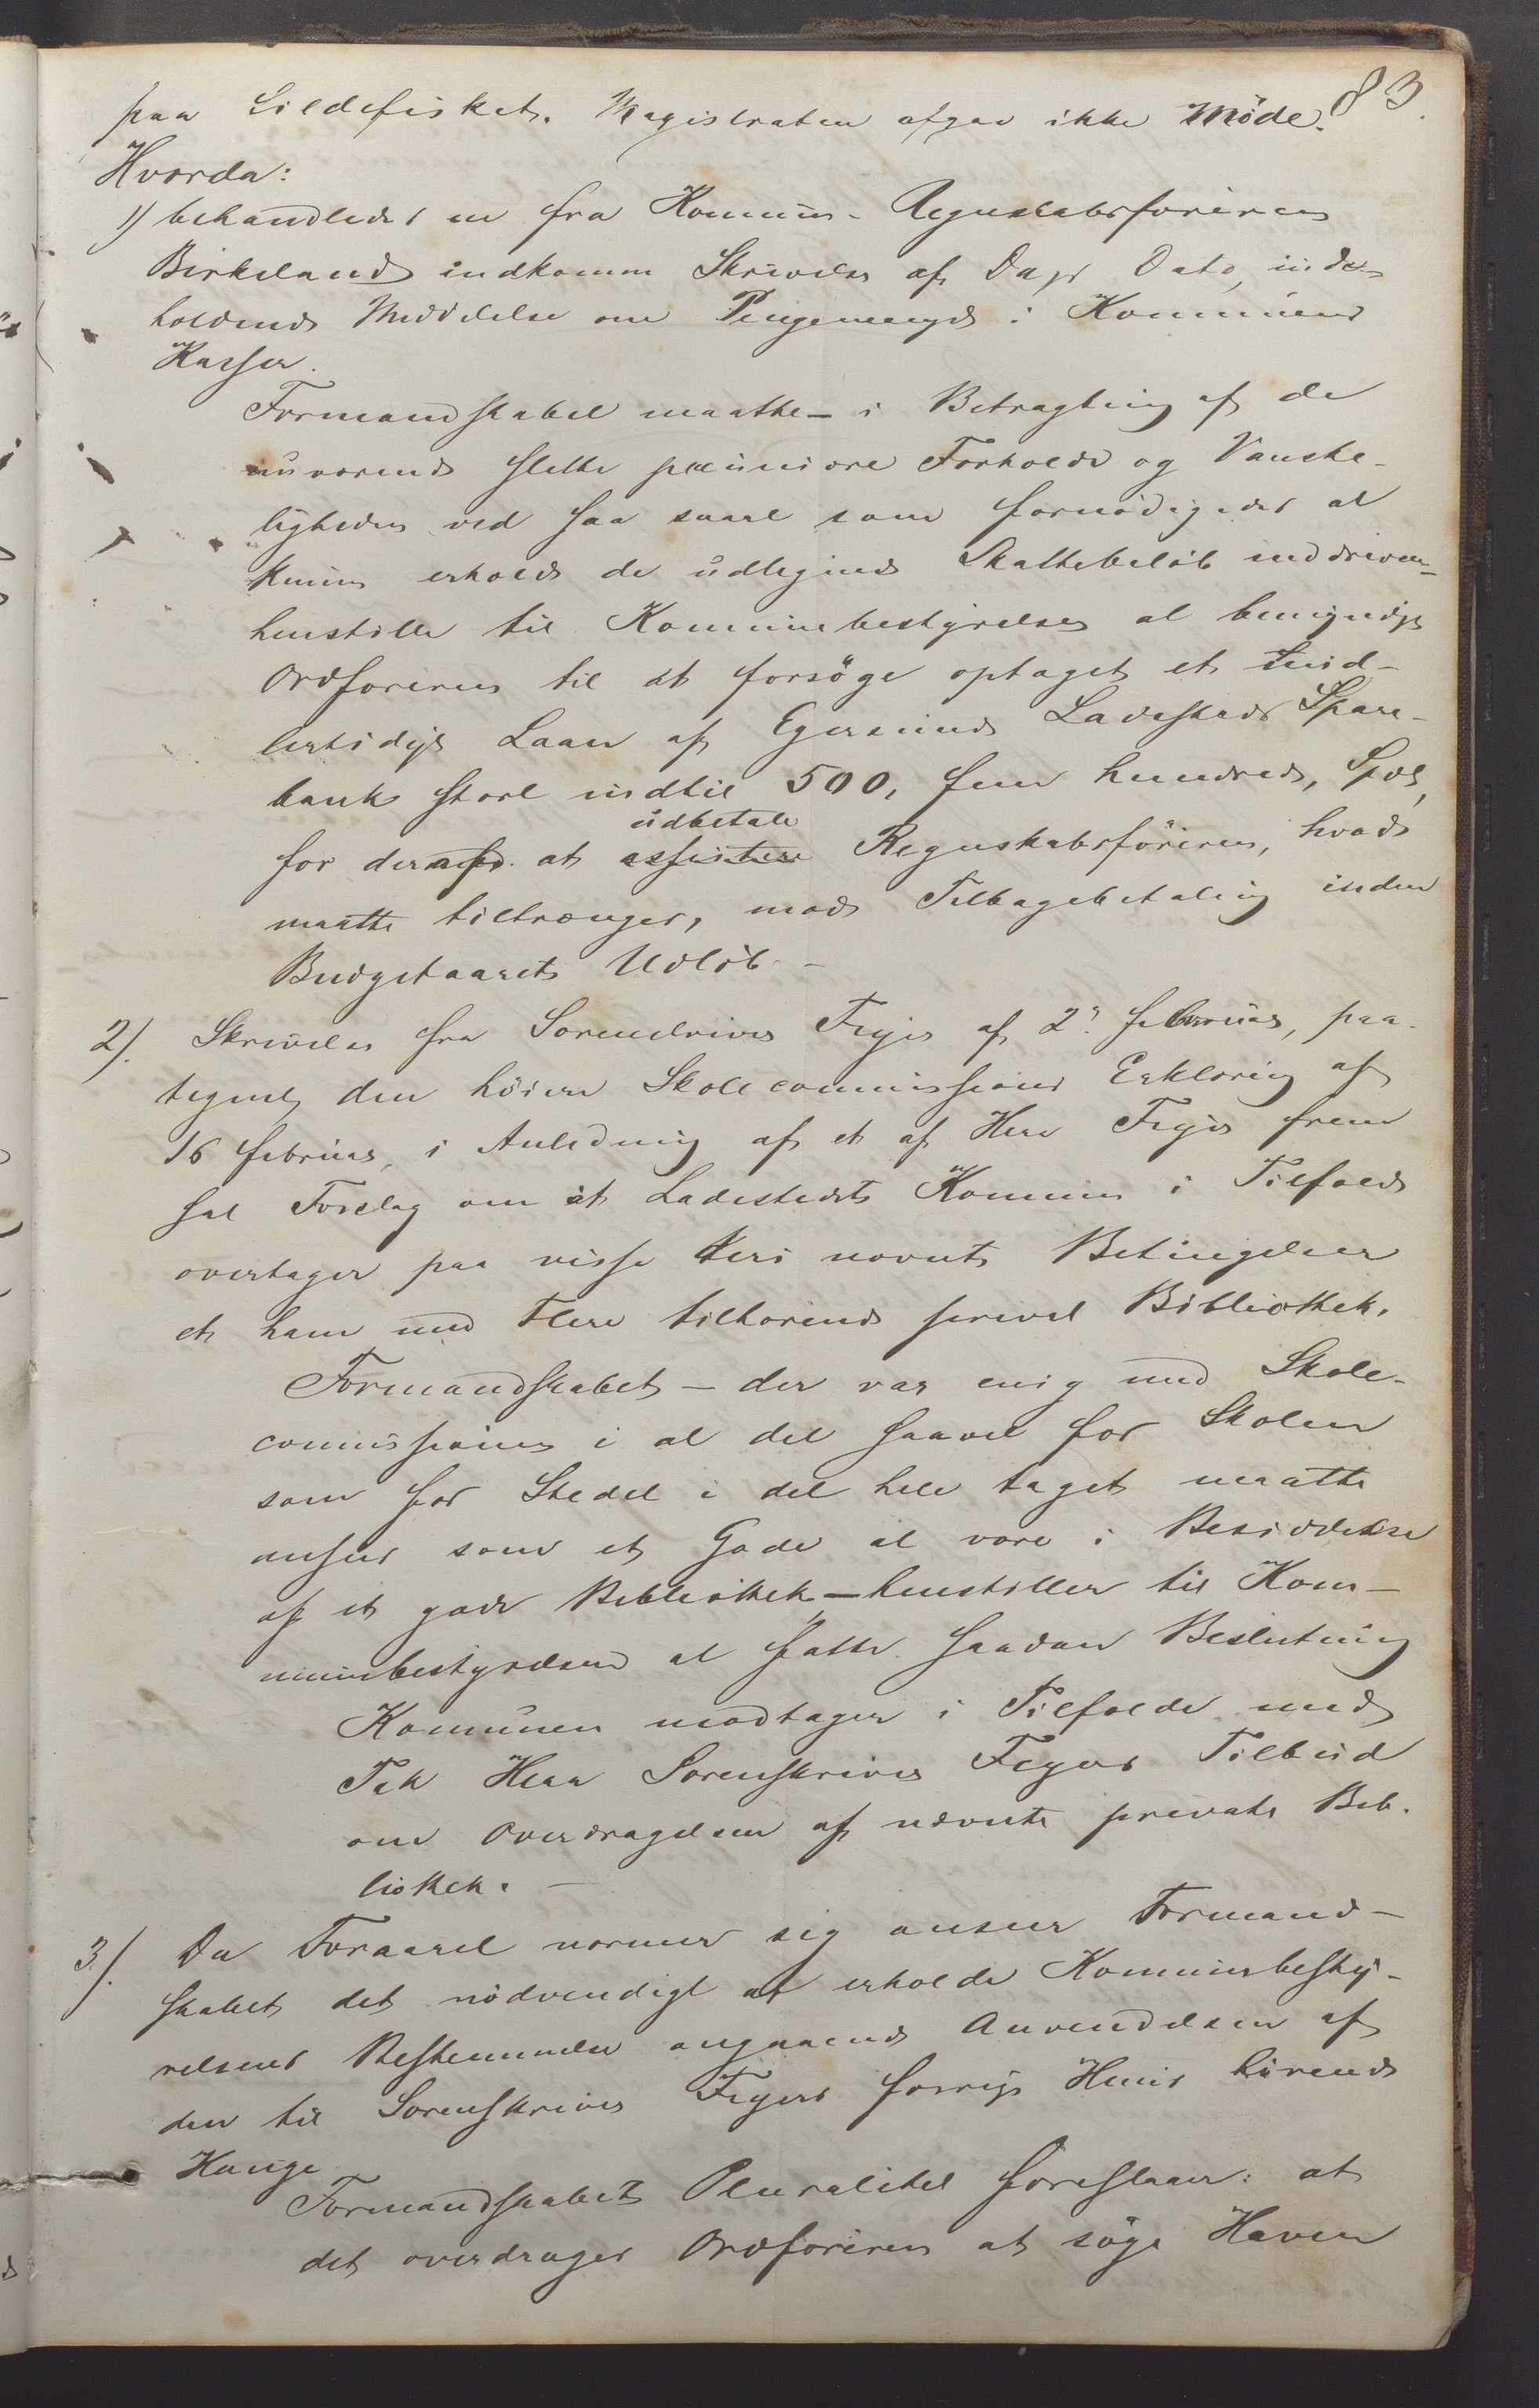 83.
paa Sildefisket. Magistraten afgav ikke Möde.
Hvorda:
1) behandledes en fra Kommune-Regnskabsföreren
Birkeland indkommen Skrivelse af Dags Dato, inde-
holdende Meddelelse om Pengemangel i Kommunens
Kasser.
Formandskabet maatte – i Betragtning af de
nuværende slette pecuniære Forholde og Vanske-
ligheden ved saa snart som fornödigedes at
kunne erholde de udlignede Skattebelöb inddrevne –
henstille til Kommunebestyrelsen at bemyndige
Ordföreren til at forsöge optaget et mid-
lertidigt Laan af Egersunds Ladesteds Spare-
bank stort indtil 500, fem hundrede, Spdl,
for deraf at assistere udbetale Regnskabsföreren, hvad
maatte tiltrænges, mod Tilbagebetaling inden
Budgetaarets Udlöb –
2). Skrivelse fra Sorenskriver Feyer af 2. februar, paa-
tegnet den höiere Skolecommissions Erklæring af
16 februar, i Anledning af et af Herr Feyer frem
sat Forslag om at Ladestedets Kommune i Tilfælde
overtager paa visse deri nævnte Betingelser
et ham med Flere tilhörende privat Bibliothek.
Formandskabet – der var enig med Skole-
commissionen i at det saavel for Skolen
som for Stedet i det hele taget maatte
ansees som et Gode at være i Besiddelse
af et godt Bibliothek – henstiller til Kom-
munebestyrelsen at fatte saadan Beslutning
Kommunen modtager i Tilfælde med
Tak Herr Sorenskriver Feyers Tilbud
om Overdragelsen af nævnte private Bib-
liothek. –
3). Da Foraaret nærmer sig anseer Formand-
skabet det nödvendigt at erholde Kommunebesty-
relsens Bestemmelse angaaende Anvendelsen af
den til Sorenskriver Feyers forrige Huus hörende
Hauge
Formandskabets Pluralitet foreslaaer: at
det overdrages Ordföreren at söge Haven